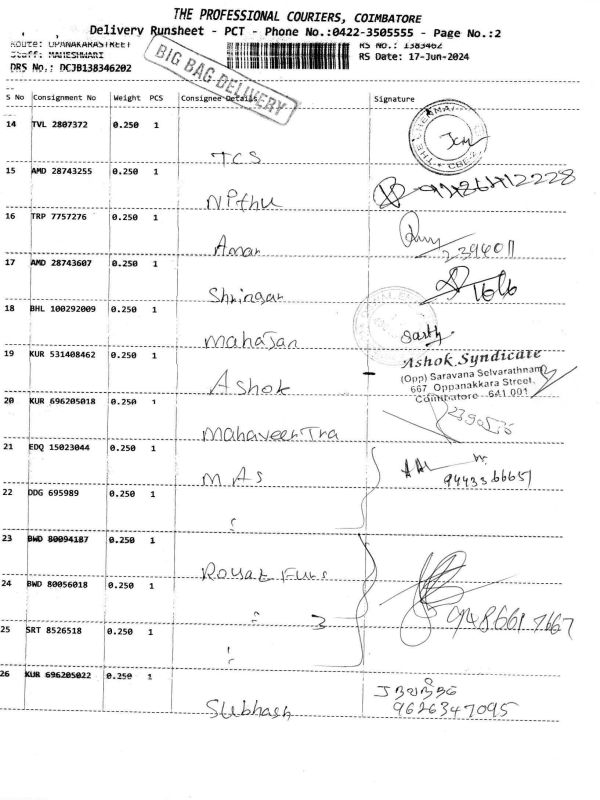 THE PROFESSIONAL COURIERS, COIMBATORE
Delivery Runsheet - PCT - Phone No.:0422-3505555 - Page No.:2
Route: OPANAKARASTREET
RS No.: 1383462
Staff: MAHESHWARI
RS Date: 17-Jun-2024
DRS No.: DCJB138346202
BIG BAG DELIVERY
S No Consignment No Weight PCS Consignee Details Signature
14 TVL 2807372 0.250 1
TCS
15 AMD 28743255 0.250 1
Nithu
16 TRP 7757276 0.250 1
Aman
17 AMD 28743607 0.250 1
Shringar
18 BHL 100292009 0.250 1
mahajan
19 KUR 531408462 0.250 1
Ashok
Ashok Syndicate
(Opp) Saravana Selvarathnam
667 Oppanakkara Street,
Coimbatore - 641 001
20 KUR 696205018 0.250 1
mahaveer Tra
21 EDQ 15023044 0.250 1
MAS
22 DDG 695989 0.250 1
23 BWD 80094187 0.250 1
Royal Furs
24 BWD 80056018 0.250 1
3
25 SRT 8526518 0.250 1
26 KUR 696205022 0.250 1
Subhash
9626347095